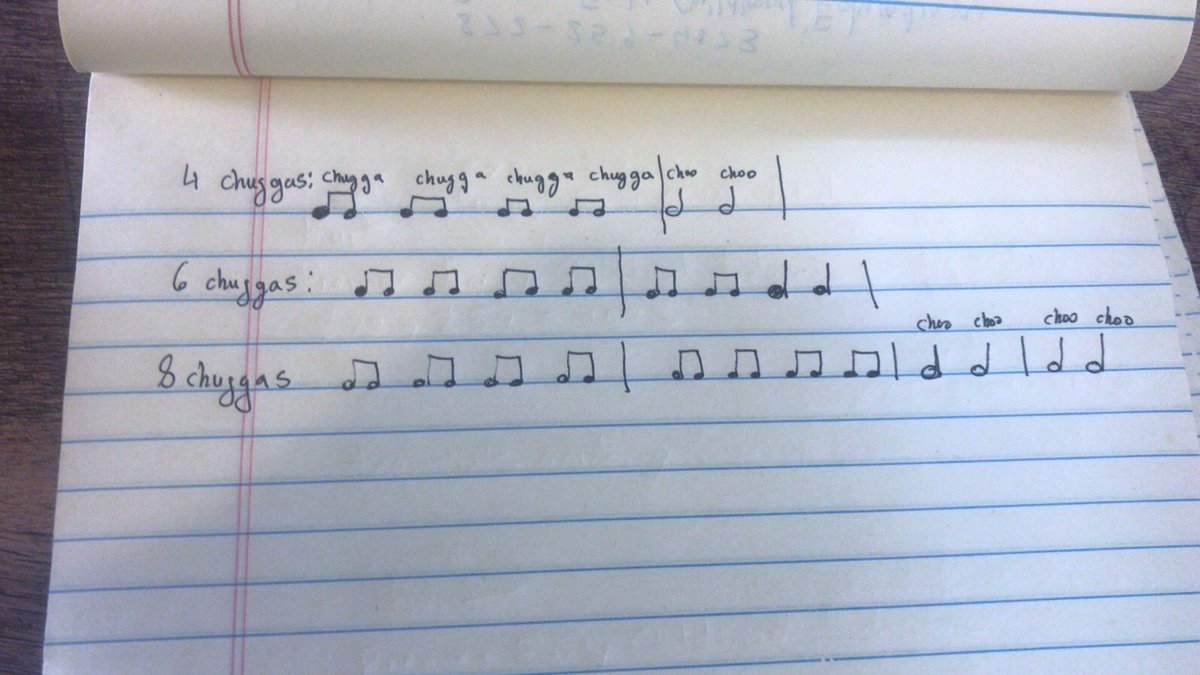 4 chuggas: chugga chugga chugga chugga choo choo
6 chuggas:
choo choo choo choo
8 chuggas